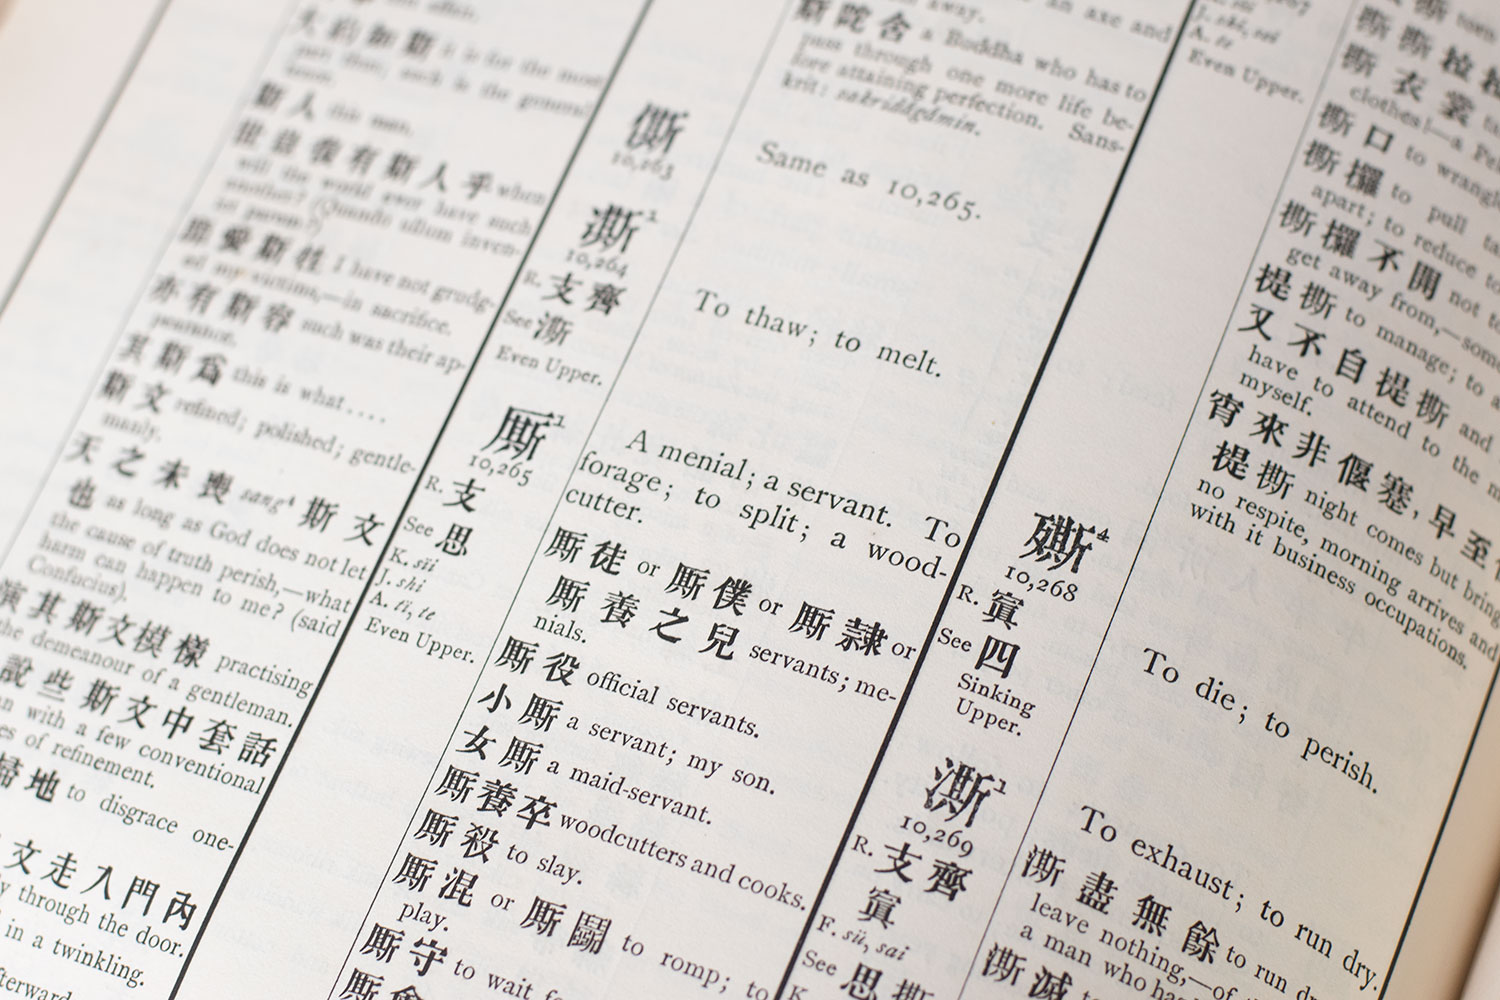 大約如斯 it is for the most
斯人 this man.
世豈復有斯人乎 when
will the world ever have such
another? (Quando ullum inven-
iet parem?)
I have not grudg-
ed my victims,—in sacrifice.
亦有斯容 such was their ap-
pearance.
其斯爲 this is what....
斯文 refined; polished; gentle-
manly.
天之未喪 sang⁴ 斯文
也 as long as God does not let
the cause of truth perish,—what
harm can happen to me? (said
Confucius).
演其斯文模樣 practising
the demeanour of a gentleman.
說些斯文中套話
with a few conventional
of refinement.
掃地 to disgrace one-
文走入門內
through the door.
in a twinkling.
10,263
澌¹
10,264
R. 支齊
See 澌
Even Upper.
厮²
10,265
R. 支
See 思
K. sii
J. shi
A. ti, te
Even Upper.
an axe and
away.
斯陀含 a Buddha who has to
pass through one more life be-
fore attaining perfection. Sans-
krit: sakridâgâmin.
Same as 10,265.
To thaw; to melt.
A menial; a servant. To
forage; to split; a wood-
cutter.
厮徒 or 厮僕 or 厮隸 or
厮養之兒 servants; me-
nials.
厮役 official servants.
小厮 a servant; my son.
女厮 a maid-servant.
厮養卒 woodcutters and cooks.
厮殺 to slay.
厮混 or 厮鬬 to romp; to
play.
厮守 to wait
J. shi, sei
A. te
Even Upper.
10,268
R. 寘
See 四
Sinking
Upper.
澌¹
10,269
R. 支齊
寘
F. sü, sai
See 思
K.
撕衣裳
clothes!—a
撕口 to wrangle
撕攞 to pull
apart; to reduce to
撕攞不開 not to
get away from,—some
提撕 to manage; to
又不自提撕 and
have to attend to the
myself.
宵來非偃塞,早至
提撕 night comes but brings
no respite, morning arrives and
with it business occupations.
To die; to perish.
To exhaust; to run dry.
澌盡無餘 to run dry
leave nothing,—of
a man who has
澌滅